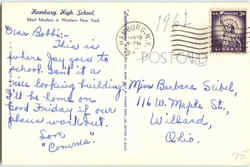 Hamburg High School
Most Modern in Western New York
1961
HAMBURG, N.Y.
POSTCARD
Dear Bobbi:-
This is
where Jay goes to
school. Isn't it a
nice looking building?
I'll be home on
Good Friday if our
plans work out.
Love
"Connie"
Miss Barbara Seibel,
116 W. Maple St.,
Willard,
Ohio.